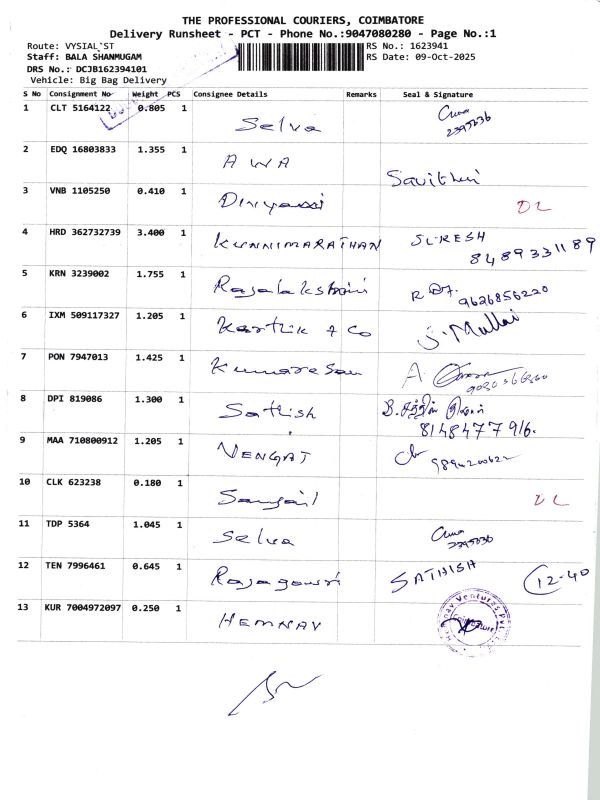 THE PROFESSIONAL COURIERS, COIMBATORE
Delivery Runsheet - PCT - Phone No.:9047080280 - Page No.:1
Route: VYSIAL ST
RS No.: 1623941
Staff: BALA SHANMUGAM
RS Date: 09-Oct-2025
DRS No.: DCJB162394101
Vehicle: Big Bag Delivery
S No Consignment No Weight PCS Consignee Details Remarks Seal & Signature
1 CLT 5164122 0.805 1 Selva 2395236
2 EDQ 16803833 1.355 1 AWA Savithri
3 VNB 1105250 0.410 1 DL
4 HRD 362732739 3.400 1 KUNNIMARATHAN SURESH
8489331189
5 KRN 3239002 1.755 1 9626856220
6 IXM 509117327 1.205 1 Karthik & Co S. Mullai
7 PON 7947013 1.425 1 Kumaresan A
8 DPI 819086 1.300 1 Sathish
8148477916.
9 MAA 710800912 1.205 1 VENGAT
10 CLK 623238 0.180 1 DL
11 TDP 5364 1.045 1 Selva
12 TEN 7996461 0.645 1 Rajagowri SATHISH 12-40
13 KUR 7004972097 0.250 1 HEMNAV